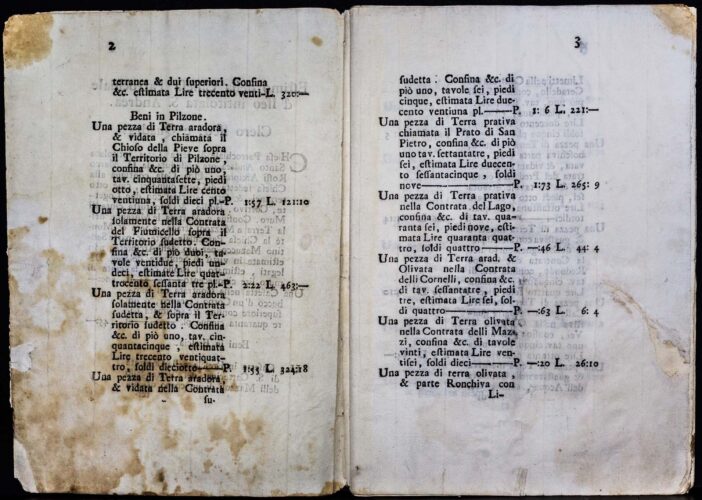 2
terranea & dui superiori. Confina
&c. estimata Lire trecento venti-L. 320:—
Beni in Pilzone.
Una pezza di Terra aradora,
& vidata, chiamata il
Chioso della Pieve sopra
il Territorio di Pilzone,
confina &c. di più uno,
tav. cinquantasette, piedi
otto, estimata Lire cento
ventiuna, soldi dieci pl.-P. 1:57 L. 121:10
Una pezza di Terra aradora
solamente nella Contrata
del Fiumicello sopra il
Territorio sudetto. Con-
fina &c. di più dubi, ta-
vole ventidue, piedi un-
deci, estimate Lire quat-
trocento sessanta tre pl.-P. 2:22 L. 463:—
Una pezza di Terra aradora
solamente nella Contrata
sudetta, & sopra il Ter-
ritorio sudetto. Confina
&c. di più uno, tav. cin-
quantacinque, estimata
Lire trecento ventiquat-
tro, soldi dieciotto—P. 1:55 L. 324:18
Una pezza di Terra aradora,
& vidata nella Contrata
su-
3
sudetta. Confina &c. di
più uno, tavole sei, piedi
cinque, estimata Lire due-
cento ventiuna pl.—P. 1: 6 L. 221:—
Una pezza di Terra prativa
chiamata il Prato di San
Pietro, confina &c. di più
uno tav. settantatre, piedi
sei, estimata Lire duecen-
to sessantacinque, soldi
nove—P. 1:73 L. 265: 9
Una pezza di Terra prativa
nella Contrata del Lago,
confina &c. di tav. qua-
ranta sei, piedi nove, esti-
mata Lire quaranta quat-
tro, soldi quattro—P. —:46 L. 44: 4
Una pezza di Terra arad. &
Olivata nella Contrata
delli Cornelli, confina &c.
di tav. sessantatre, piedi
tre, estimata Lire sei, sol-
di quattro—P. —:63 L. 6: 4
Una pezza di Terra olivata
nella Contrata delli Maz-
zi, confina &c. di tavole
vinti, estimata Lire ven-
tisei, soldi dieci—P. —:20 L. 26:10
Una pezza di terra olivata,
& parte Ronchiva con
Li-